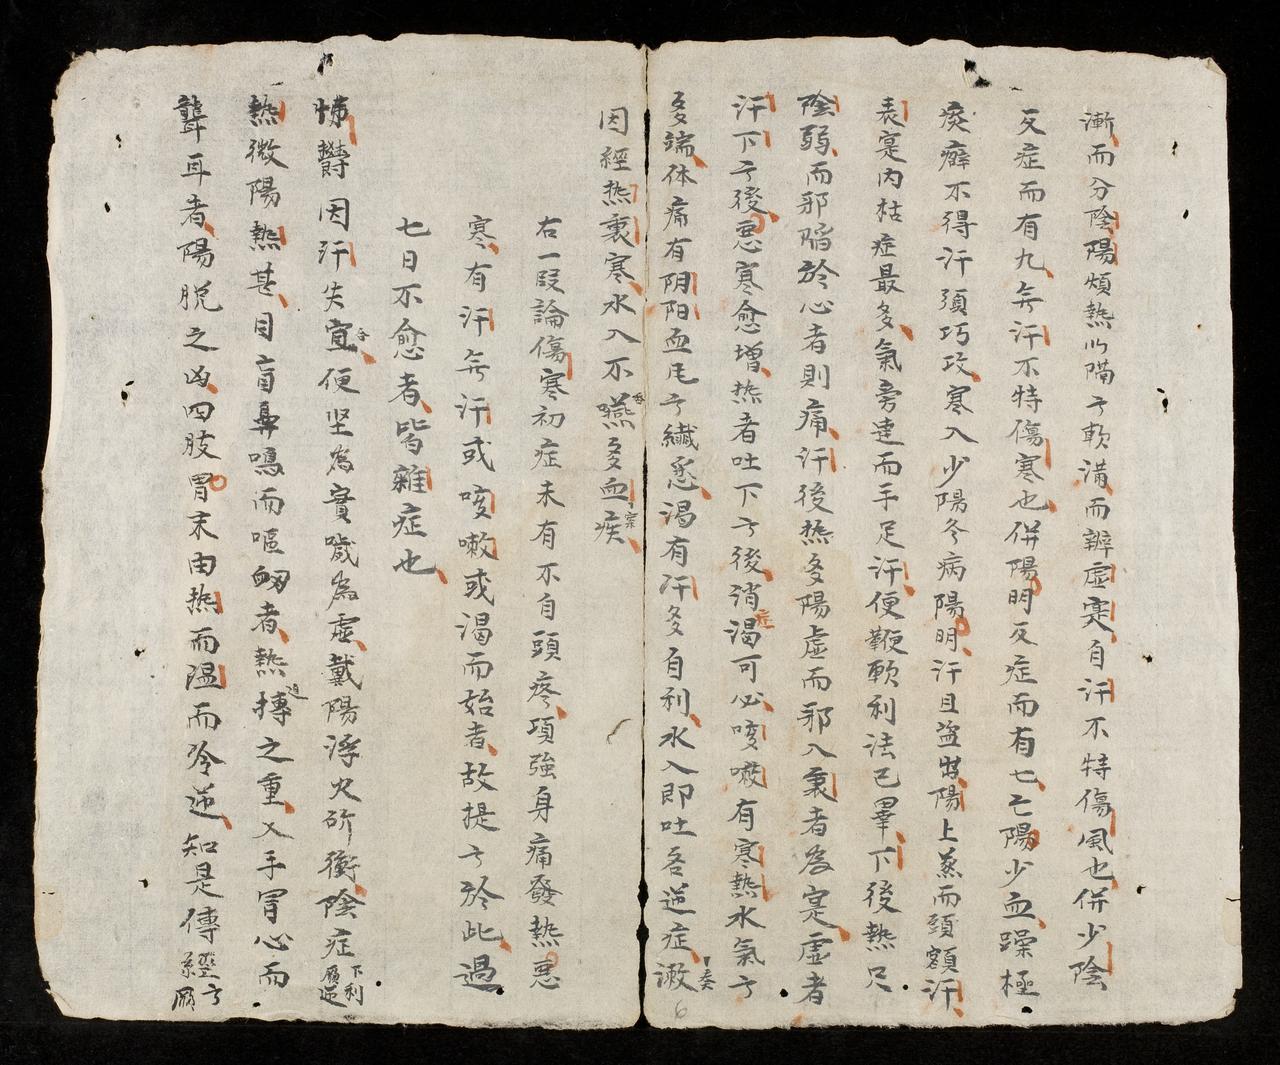 漸而分陰陽煩熱心膈之軟滿而辨虛寔自汗不特傷風也併少陰
反症而有九無汗不特傷寒也併陽明反症而有七亡陽少血躁極
痰癖不得汗須巧攻寒入少陽冬病陽明汗且盜陽上蒸而頭額汗
表寔內枯症最多氣旁達而手足汗便鞕軟利法已畢下後熱只
陰弱而邪陷於心者則痛汗後熱多陽虛而邪入裏者為寔虛者
汗下之後惡寒愈增熱者吐下之後消渴可必咳嗽有寒熱水氣之
多端体痛有阴阳血氣之纖悉渴有汗多自利水入即吐吞逆症漱
因經热裏寒水入不嚥多血疾
右一段論傷寒初症未有不自頭疼項強身痛發熱惡
寒有汗無汗或咳嗽或渴而始者故提之於此過
七日不愈者皆雜症也
怫欝因汗失宣便坚為實噦為虛戴陽浮火衝陰症下利厥逆
熱微陽熱甚目盲鼻鳴而嘔衂者熱摶之重叉手冒心而
聾耳者陽脫之凶四肢胃末由热而溫而冷逆知是傳經之厥